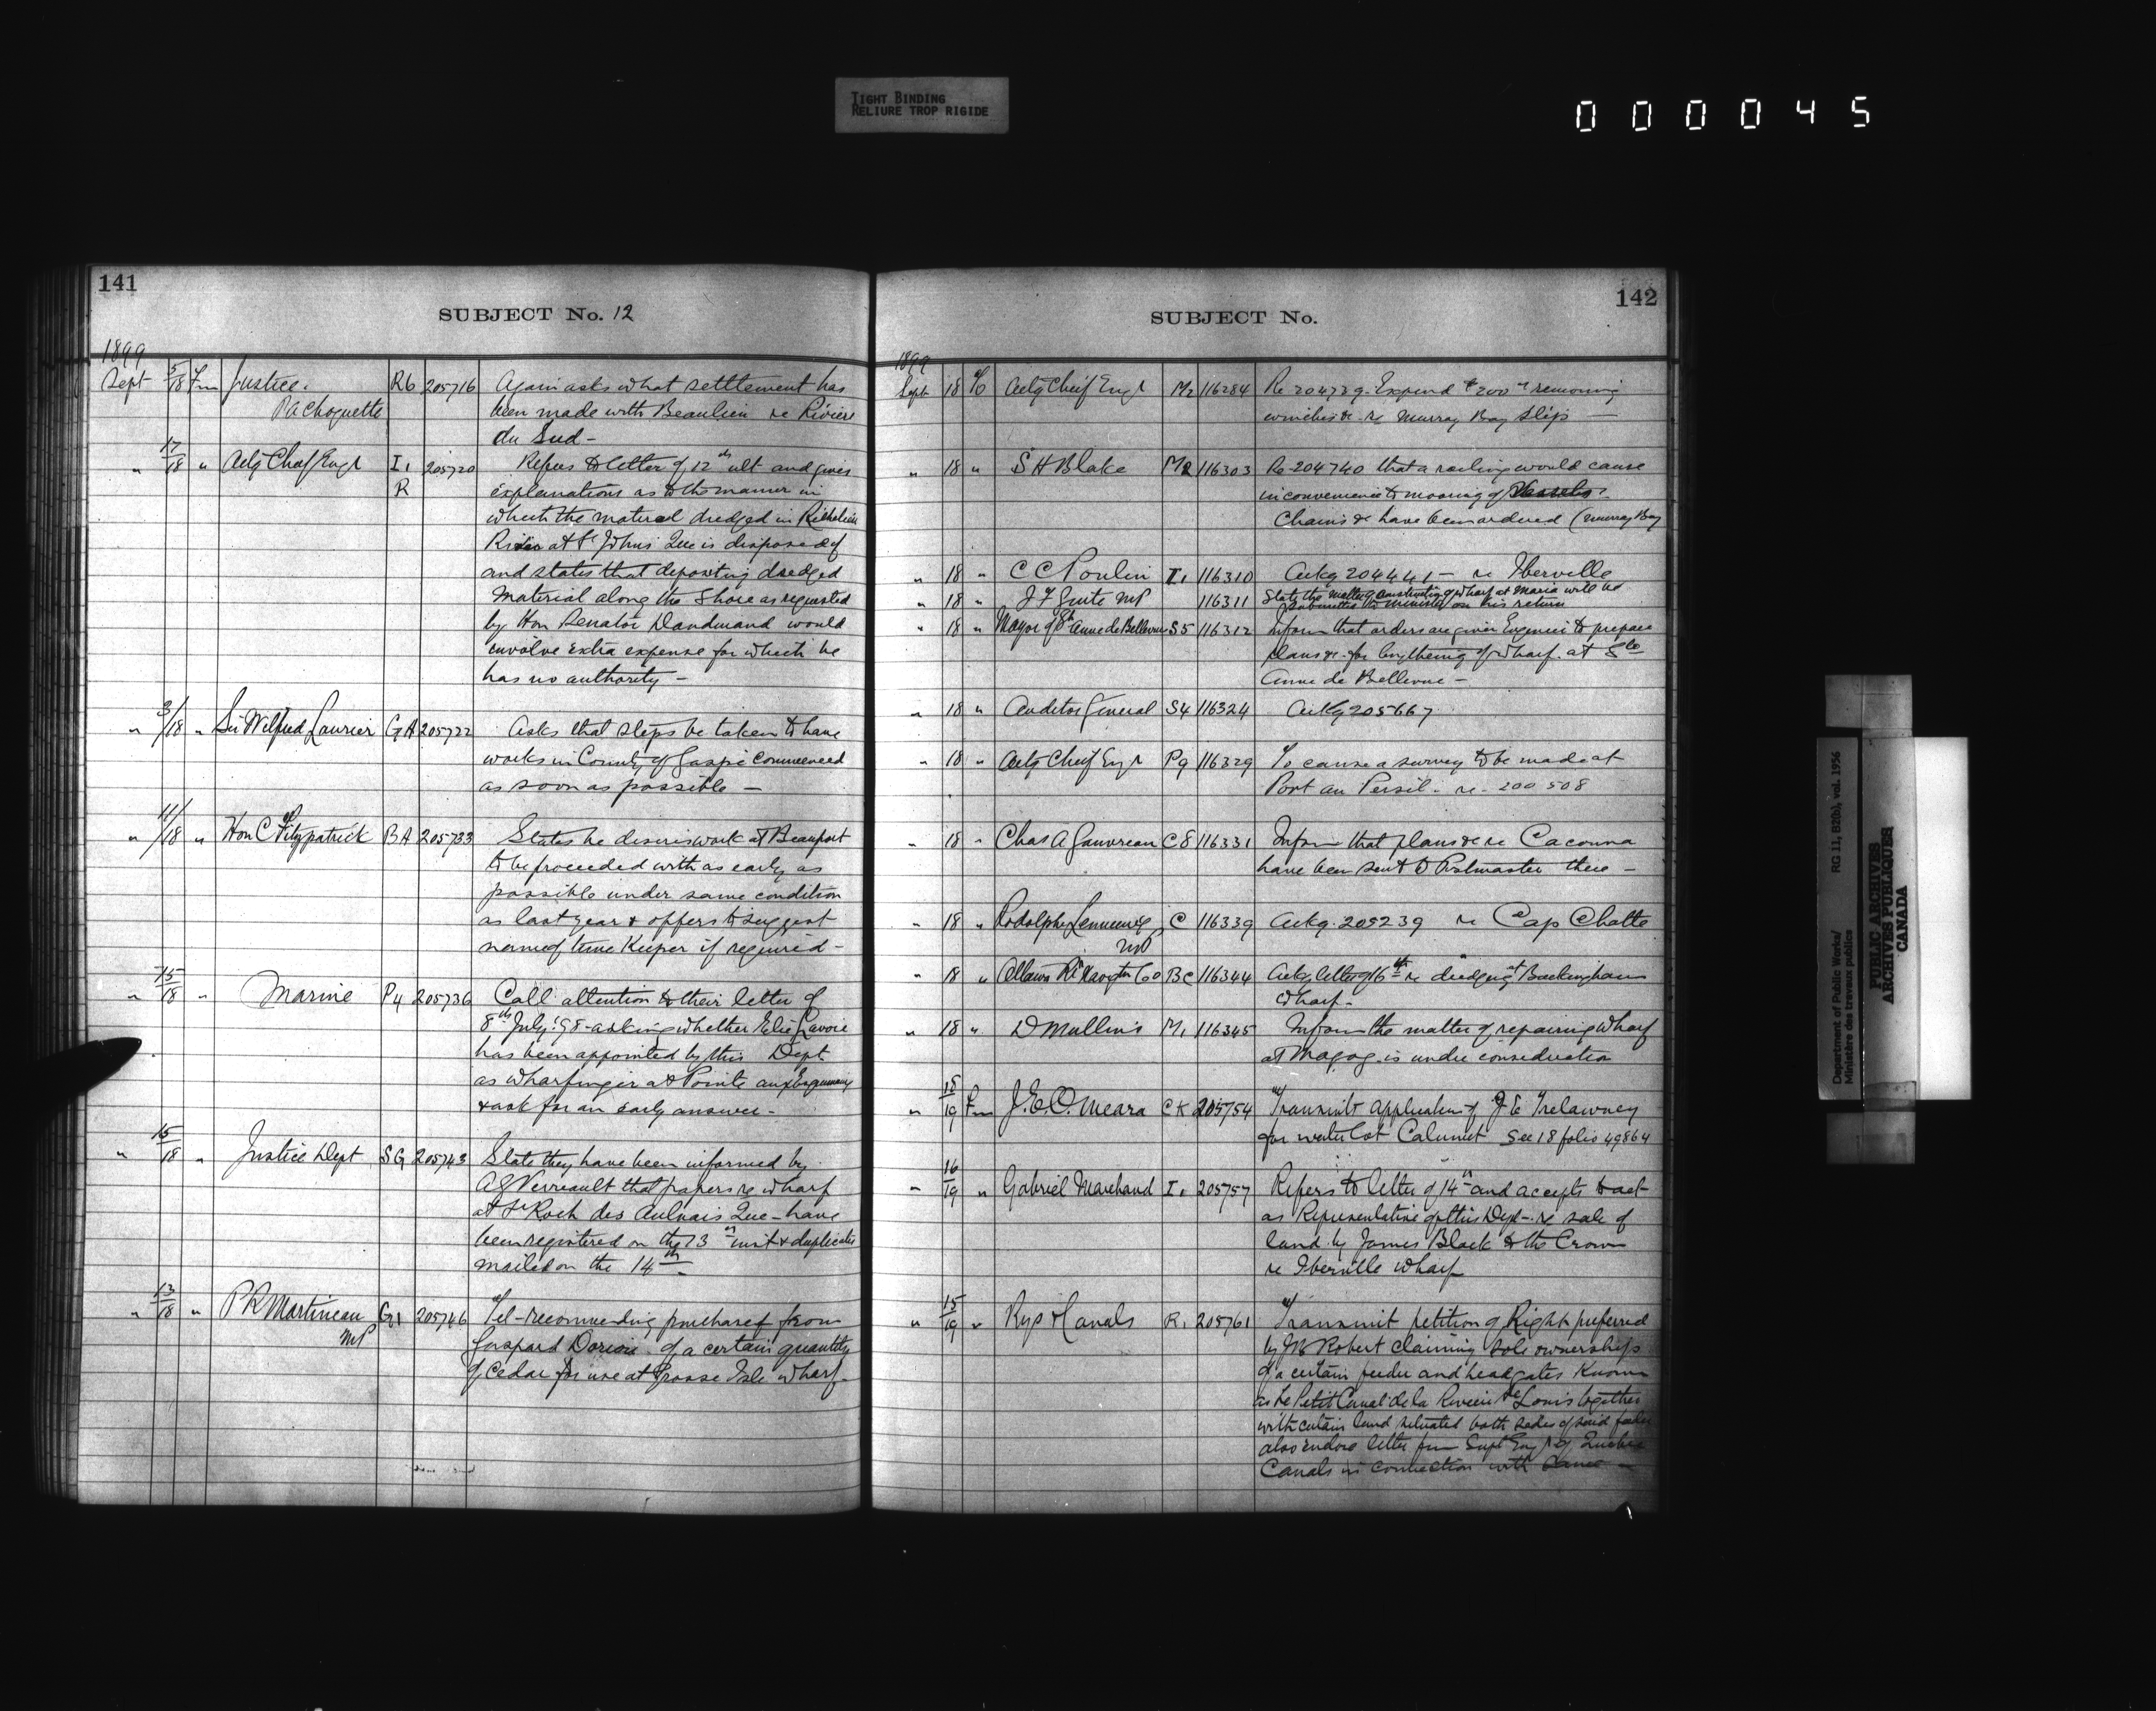 TIGHT BINDING
RELIURE TROP RIGIDE
000045
141
SUBJECT No. 12
1899
Sept 5/18 Fm Justice. R6 205716 Again asks what settlement has
P A Choquette been made with Beaulieu re Rivière
du Sud -
" 17/18 " Actg Cheif Engr I1 205720 Refers to letter of 12th ult and gives
R explanations as to the manner in
which the material dredged in Richelieu
River at St Johns Que is disposed of
and states that depositing dredged
material along the Shore as requested
by Hon Senator Dandurand would
involve extra expense for which he
has no authority -
" 3/18 " Sir Wilfred Laurier GA 205722 Asks that steps be taken to have
works in County of Gaspé Commenced
as soon as possible -
" 11/18 " Hon C Fitzpatrick BA 205733 States he desires work at Beauport
to be proceeded with as early as
possible under same condition
as last year & offers to suggest
name of time Keeper if required -
" 15/18 " Marine P4 205736 Call attention to their letter of
8th July '98 - asking whether Elie Lavoie
has been appointed by this Dept.
as wharfinger at Pointe aux Esquimaux
& ask for an early answer -
" 15/18 " Justice Dept SG 205743 State they have been informed by
A G Verreault that papers re wharf
at St Roch des Aulnais Que - have
been registered on the 13th inst & duplicates
mailed on the 14th -
" 13/18 " P R Martineau G1 205746 Tel - recommending purchase from
MP Gaspard Dorion of a certain quantity
of Cedar for use at Grosse Isle wharf -
142
SUBJECT No.
1899
Sept 18 To Actg Cheif Engr M2 116284 Re 204739 - Expend $200 removing
winches &c re Murray Bay Slips -
" 18 " S H Blake M2 116303 Re 204740 that a railing would cause
inconvenience to mooring of Vessels.
Chains &c have been ordered (Murray Bay
" 18 " C C Poulin I1 116310 Ackg 204441 - re Iberville
" 18 " J F Guite MP 116311 State the matter of constructing of wharf at Maria will be
submitted to Minister on his return
" 18 " Mayor of Ste Anne de Bellevue S5 116312 Inform that orders are given Engineer to prepare
plans &c for lengthening of wharf at Ste
Anne de Bellevue -
" 18 " Auditor General S4 116324 Ackg 205667
" 18 " Actg Cheif Engr P9 116329 To cause a survey to be made at
Port au Persil - re - 200508
" 18 " Chas A Gauvreau C8 116331 Inform that plans &c re Cacouna
have been sent to Postmaster there -
" 18 " Rodolphe Lemieux C 116339 Ackg. 205239 re Cap Chatte
MP
" 18 " Ottawa Rr Navigtn Co BC 116344 Ackg letter of 16th re dredging at Buckingham
wharf -
" 18 " D Mullins M1 116345 Inform the matter of repairing wharf
at Magog is under consideration
" 15/19 Fm J. E. O. Meara CK 205754 Transmit application of J E Trelawney
for water lot Calumet See 18 folio 49864
" 16/19 " Gabriel Marchand I1 205757 Refers to letter of 14th and accepts to act
as Representative of this Dept - re sale of
land by James Black to the Crown
re Iberville wharf
" 15/19 " Rys & Canals R1 205761 Transmit petition of Right preferred
by J B Robert claiming sole ownership
of a certain feeder and headgates Known
as Le Petit Canal de la Riviere St Louis together
with certain land situated both sides of said feeder
also enclose letter from Supt Engr of Quebec
Canals in connection with same -
Department of Public Works/ RG 11, B2(b), vol. 1956
Ministère des travaux publics
PUBLIC ARCHIVES
ARCHIVES PUBLIQUES
CANADA